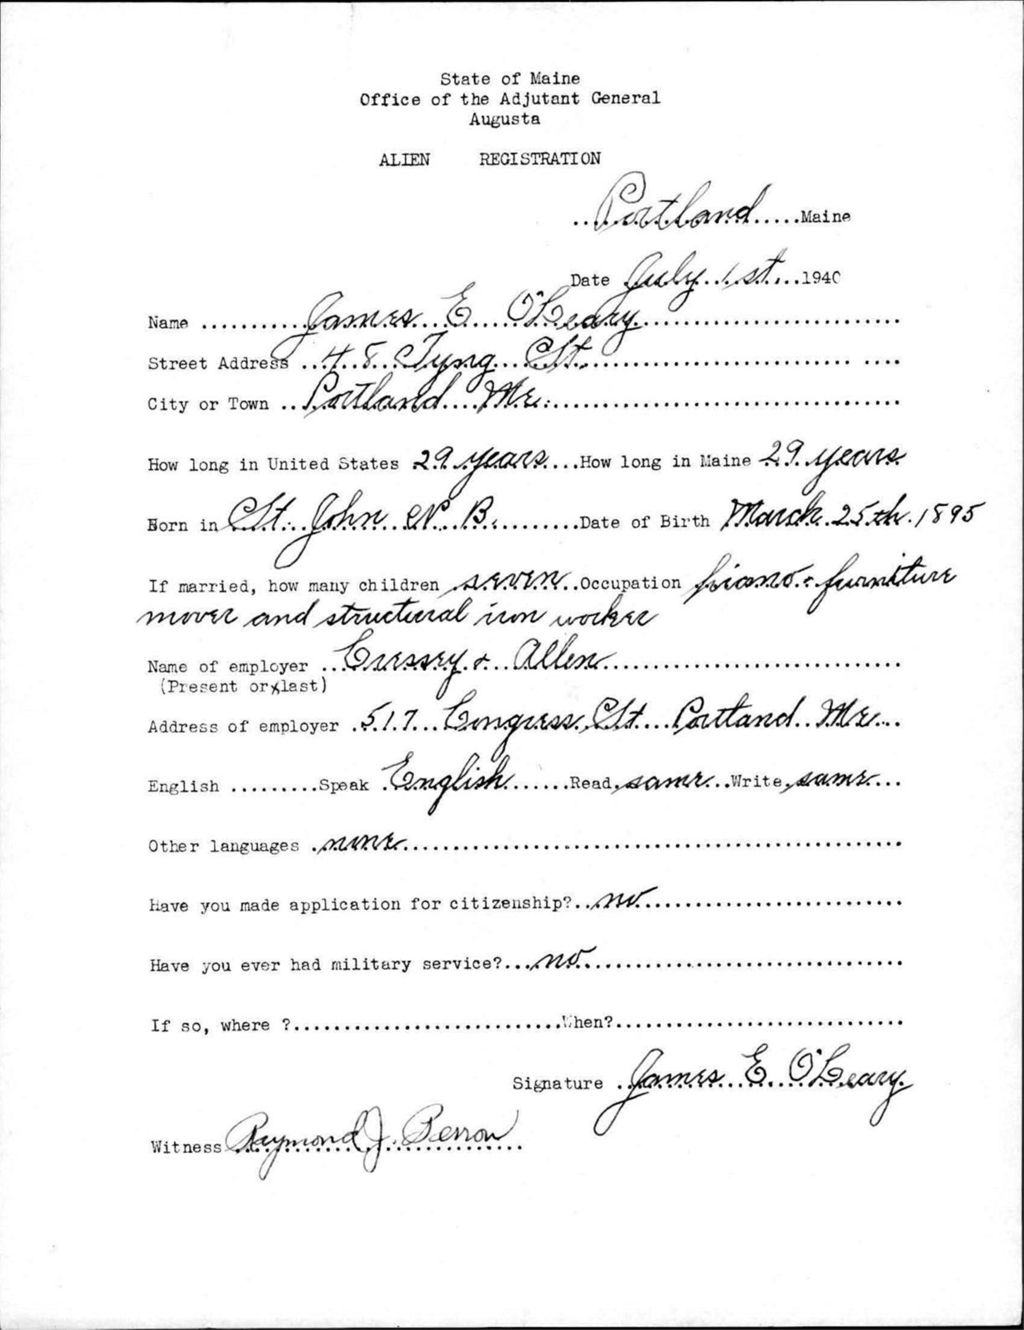 State of Maine
Office of the Adjutant General
Augusta
ALIEN REGISTRATION
Portland Maine
Date July 1st 1940
Name James E O'Leary
Street Address 48 Tyng St.
City or Town Portland Me.
How long in United States 29 years How long in Maine 29 years
Born in St. John N. B. Date of Birth March 25th 1895
If married, how many children seven Occupation piano & furniture
mover and structural iron worker
Name of employer Cressey & Allen
(Present or last)
Address of employer 517 Congress St Portland Me
English Speak English Read same Write same
Other languages none
Have you made application for citizenship? no
Have you ever had military service? no
If so, where ? When?
Signature James E. O'Leary
Witness Raymond J. Perron